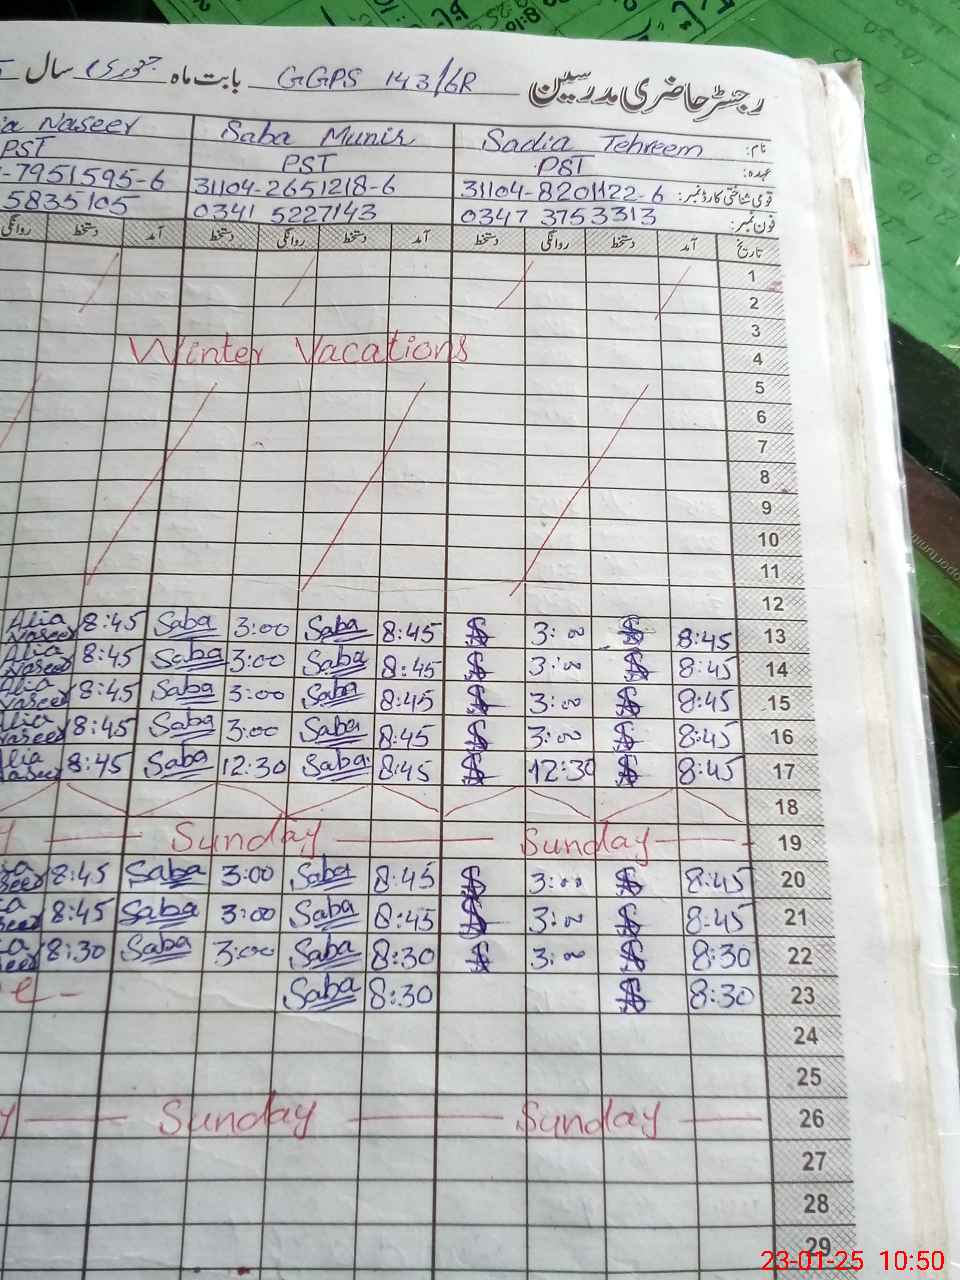 رجسٹر حاضری مدرسین GGPS 143/6R بابت ماہ جنوری سال
نام: Sadia Tehreem Saba Munir ia Naseer
عہدہ: PST PST PST
قومی شناختی کارڈ نمبر: 31104-8201122-6 31104-2651218-6 -7951595-6
فون نمبر: 0347 3753313 0341 5227143 5835105
تاریخ آمد دستخط روانگی دستخط آمد دستخط روانگی دستخط آمد دستخط روانگی
1
2
3
Winter Vacations
4
5
6
7
8
9
10
11
12
Alia Naseer 8:45 Saba 3:00 Saba 8:45 3:00 8:45 13
Alia Naseer 8:45 Saba 3:00 Saba 8:45 3:00 8:45 14
Alia Naseer 8:45 Saba 3:00 Saba 8:45 3:00 8:45 15
Alia Naseer 8:45 Saba 3:00 Saba 8:45 3:00 8:45 16
Alia Naseer 8:45 Saba 12:30 Saba 8:45 12:30 8:45 17
18
y Sunday Sunday 19
ia seer 8:45 Saba 3:00 Saba 8:45 3:00 8:45 20
ia seer 8:45 Saba 3:00 Saba 8:45 3:00 8:45 21
ia seer 8:30 Saba 3:00 Saba 8:30 3:00 8:30 22
e- Saba 8:30 8:30 23
24
25
y Sunday Sunday 26
27
28
29
23-01-25 10:50